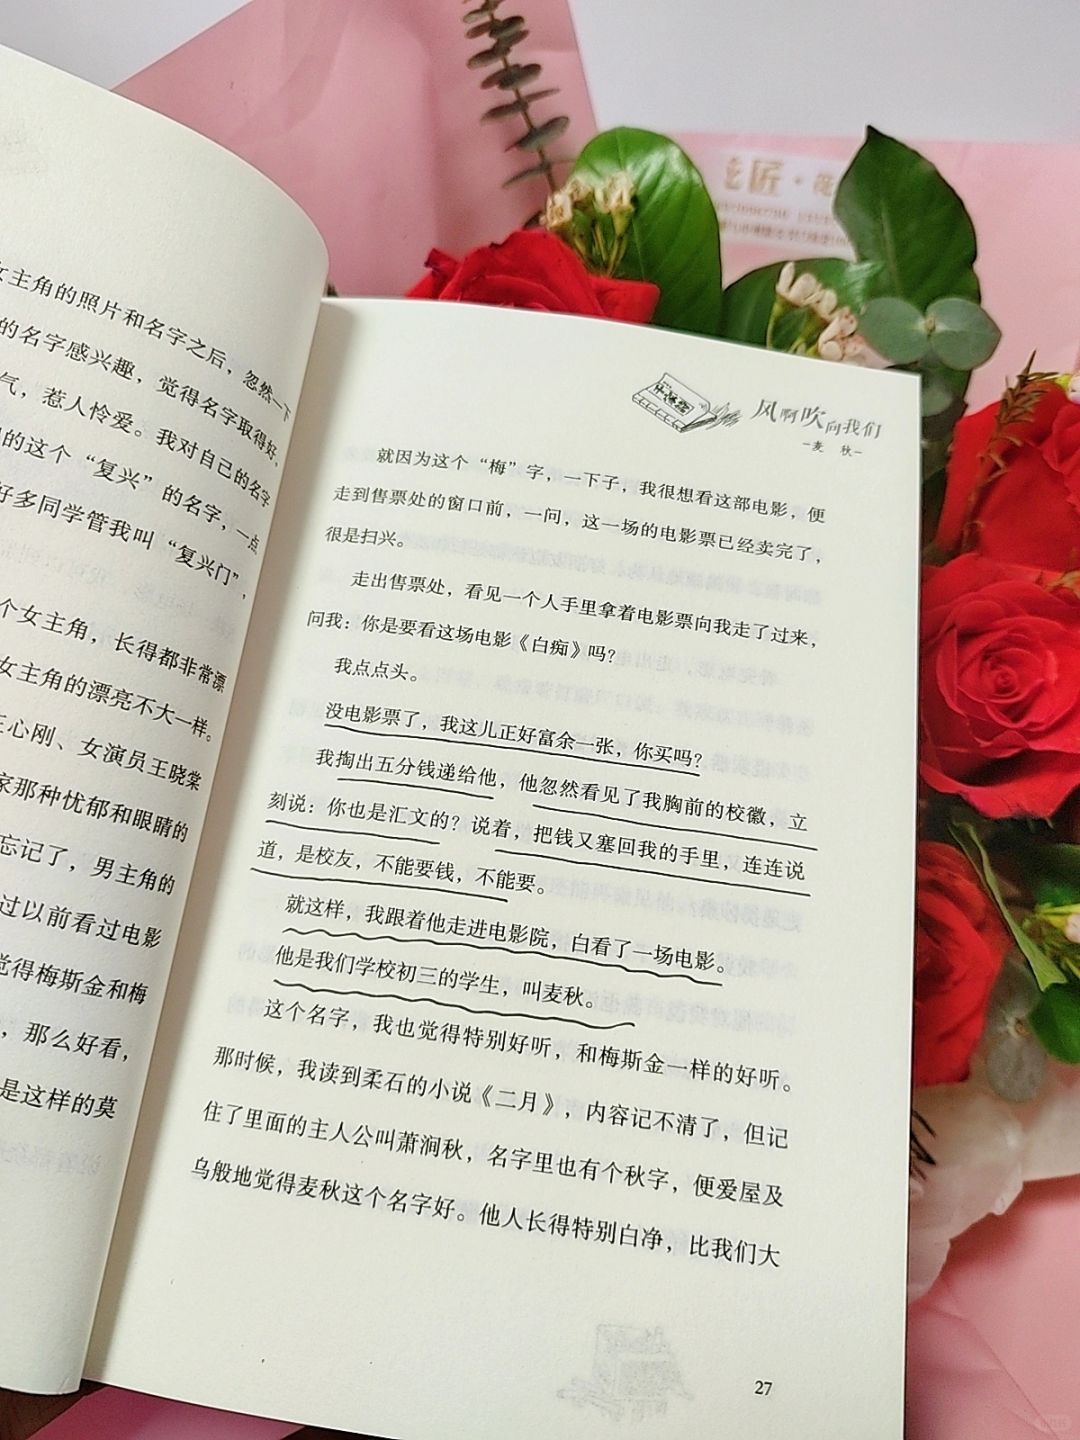 女主角的照片和名字之后，忽然一下
的名字感兴趣，觉得名字取得好，
气，惹人怜爱。我对自己的名字
的这个“复兴”的名字，一点
好多同学管我叫“复兴门”，
个女主角，长得都非常漂
女主角的漂亮不大一样。
王心刚、女演员王晓棠
家那种忧郁和眼睛的
忘记了，男主角的
过以前看过电影
觉得梅斯金和梅
，那么好看，
是这样的莫
风啊吹向我们
-麦 秋-
就因为这个“梅”字，一下子，我很想看这部电影，便
走到售票处的窗口前，一问，这一场的电影票已经卖完了，
很是扫兴。
走出售票处，看见一个人手里拿着电影票向我走了过来，
问我：你是要看这场电影《白痴》吗？
我点点头。
没电影票了，我这儿正好富余一张，你买吗？
我掏出五分钱递给他，他忽然看见了我胸前的校徽，立
刻说：你也是汇文的？说着，把钱又塞回我的手里，连连说
道，是校友，不能要钱，不能要。
就这样，我跟着他走进电影院，白看了一场电影。
他是我们学校初三的学生，叫麦秋。
这个名字，我也觉得特别好听，和梅斯金一样的好听。
那时候，我读到柔石的小说《二月》，内容记不清了，但记
住了里面的主人公叫萧涧秋，名字里也有个秋字，便爱屋及
乌般地觉得麦秋这个名字好。他人长得特别白净，比我们大
27
匠·花